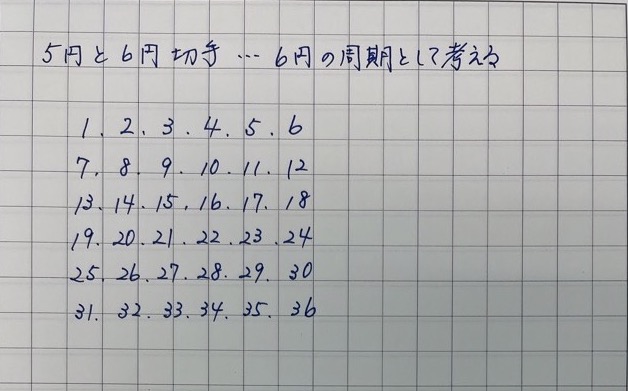 5円と6円切手…6円の周期として考える
1. 2. 3. 4. 5. 6
7. 8. 9. 10. 11. 12
13. 14. 15. 16. 17. 18
19. 20. 21. 22. 23. 24
25. 26. 27. 28. 29. 30
31. 32. 33. 34. 35. 36